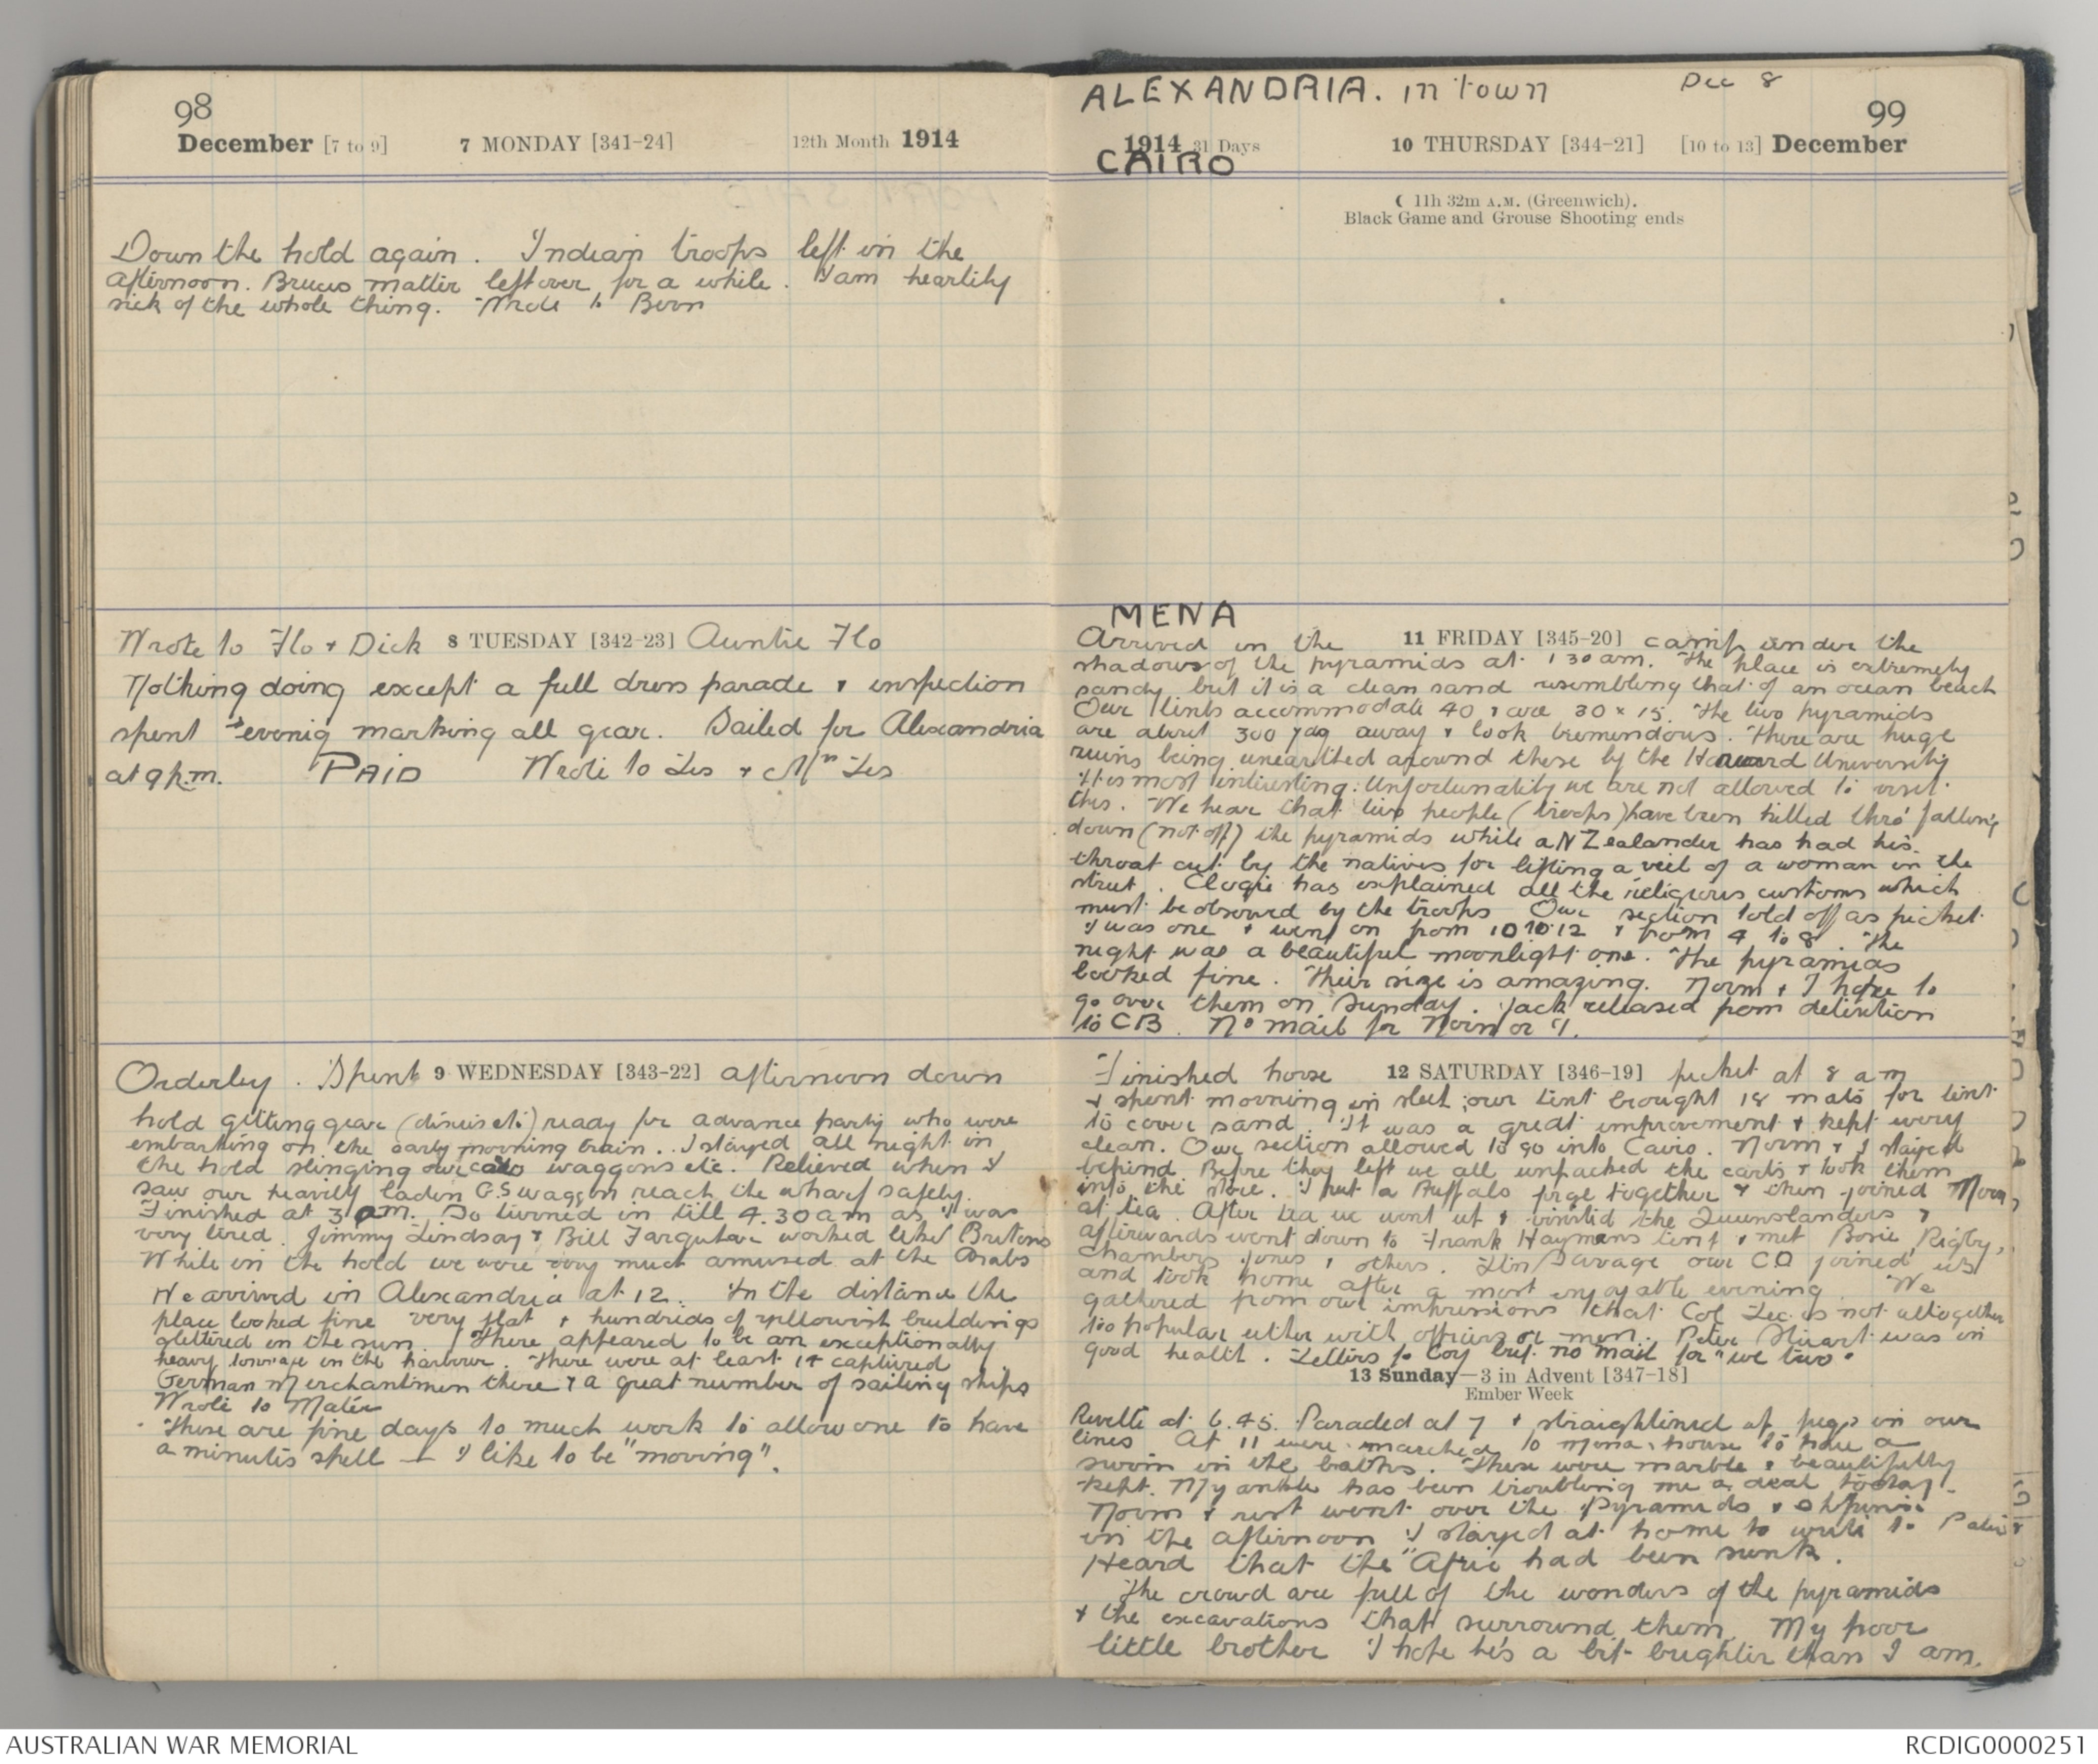 98
December [7 to 9] 7 MONDAY [341-24] 12th Month 1914
Down the hold again. Indian troops left in the
afternoon. Bruces matter left over for a while. I am heartily
sick of the whole thing. Wrote to
Wrote to Flo + Dick 8 TUESDAY [342-23] Auntie Flo
Nothing doing except a full dress parade + inspection
spent evenig marking all gear. Sailed for Alexandria
at 9 p.m. PAID Wrote to Les + Mrs Les
Orderley. Spent 9 WEDNESDAY [343-22] afternoon down
hold getting gear ready for advance party who were
embarking on the early morning train. I stayed all night in
the hold slinging our waggons etc. Relieved when I
saw our heavily laden G.S waggon reach the wharf safely.
Finished at 3 am. So turned in till 4.30 am as I was
very tired. Jimmy Lindsay + Bill Farquhar worked like Britons
While in the hold we were very much amused at the Arabs
We arrived in Alexandria at 12. In the distance the
place looked fine very flat + hundreds of yellowish buildings
glittered in the sun. There appeared to be an exceptionally
heavy tonnage in the harbour. There were at least 14 captured
German Merchantmen there + a great number of sailing ships
Wrote to Mater
These are fine days to much work to allow one to have
a minutes spell — I like to be "moving".
ALEXANDRIA. in town Dec 8
99
1914 31 Days 10 THURSDAY [344-21] [10 to 13] December
CAIRO
☾ 11h 32m A.M. (Greenwich).
Black Game and Grouse Shooting ends
MENA
Arrived in the 11 FRIDAY [345-20] camp under the
shadows of the pyramids at 1 30 am. The place is extremely
sandy but it is a clean sand resembling that of an ocean beach
Our tents accommodate 40 + are 30 x 15. The two pyramids
are about 300 yds away + look tremendous. There are huge
ruins being unearthed around these by the Harvard University
It is most interesting. Unfortunately we are not allowed to visit
this. We hear that two people (troops) have been killed thro' falling
down (not off) the pyramids while a N Zealander has had his
throat cut by the natives for lifting a veil of a woman in the
street. has explained all the religious customs which
must be observed by the troops Our section told off as picket
I was one + went on from 10 to 12 + from 4 to 8. The
night was a beautiful moonlight one. The pyramids
looked fine. Their size is amazing. Norm + I hope to
go over them on Sunday. Jack released from detention
to CB. No mail for Norm or I.
Finished horse 12 SATURDAY [346-19] picket at 8 a m
+ spent morning in sleet; our tent brought 18 mats for tent
to cover sand. It was a great improvement + kept very
clean. Our section allowed to go into Cairo. Norm + I stayed
behind. Before they left we all unpacked the carts + took them
into the store. I put a Buffalo forge together + then joined Norm
at tea. After tea we went up + visited the Queenslanders +
afterwards went down to Frank Haymans tent + met Rigby,
Chambers Jones + others. Savage our CO joined us
and took home after a most enjoyable evening. We
gathered from our impressions that Col Lee is not altogether
too popular either with officers or men. Peter Stuart was in
good health. Letters to Coy but no mail for "we two".
13 Sunday—3 in Advent [347-18]
Ember Week
Reveille at 6.45. Paraded at 7 + straightened up pegs in our
lines At 11 were marched to Mena house to have a
swim in the baths. These were marble + beautifully
kept. My ankle has been troubling me a deal today.
Norm + rest went over the Pyramids + Sphinx
in the afternoon I stayed at home to write to Pater
Heard that the "Afric had been sunk.
The crowd are full of the wonders of the pyramids
+ the excavations that surround them. My poor
little brother I hope he's a bit brighter than I am.
AUSTRALIAN WAR MEMORIAL
RCDIG0000251